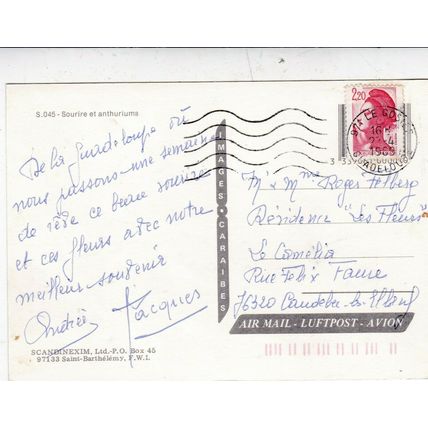 S.045 - Sourire et anthuriums
De la Guadeloupe où
nous passons une semaine
de rêve ce beau sourire
et ces fleurs avec notre
meilleur souvenir
Andrée Jacques
SCANDINEXIM, Ltd.-P.O. Box 45
97133 Saint-Barthélémy, F.W.I.
IMAGES CARAIBES
2,20
LE GOSIER
16H
GUADELOUPE
M. & Mme Roger Felberg
Résidence "Les Fleurs"
Le Camélia
Rue Felix Faure
76320 Caudebec-lès-Elbeuf
AIR MAIL - LUFTPOST - AVION